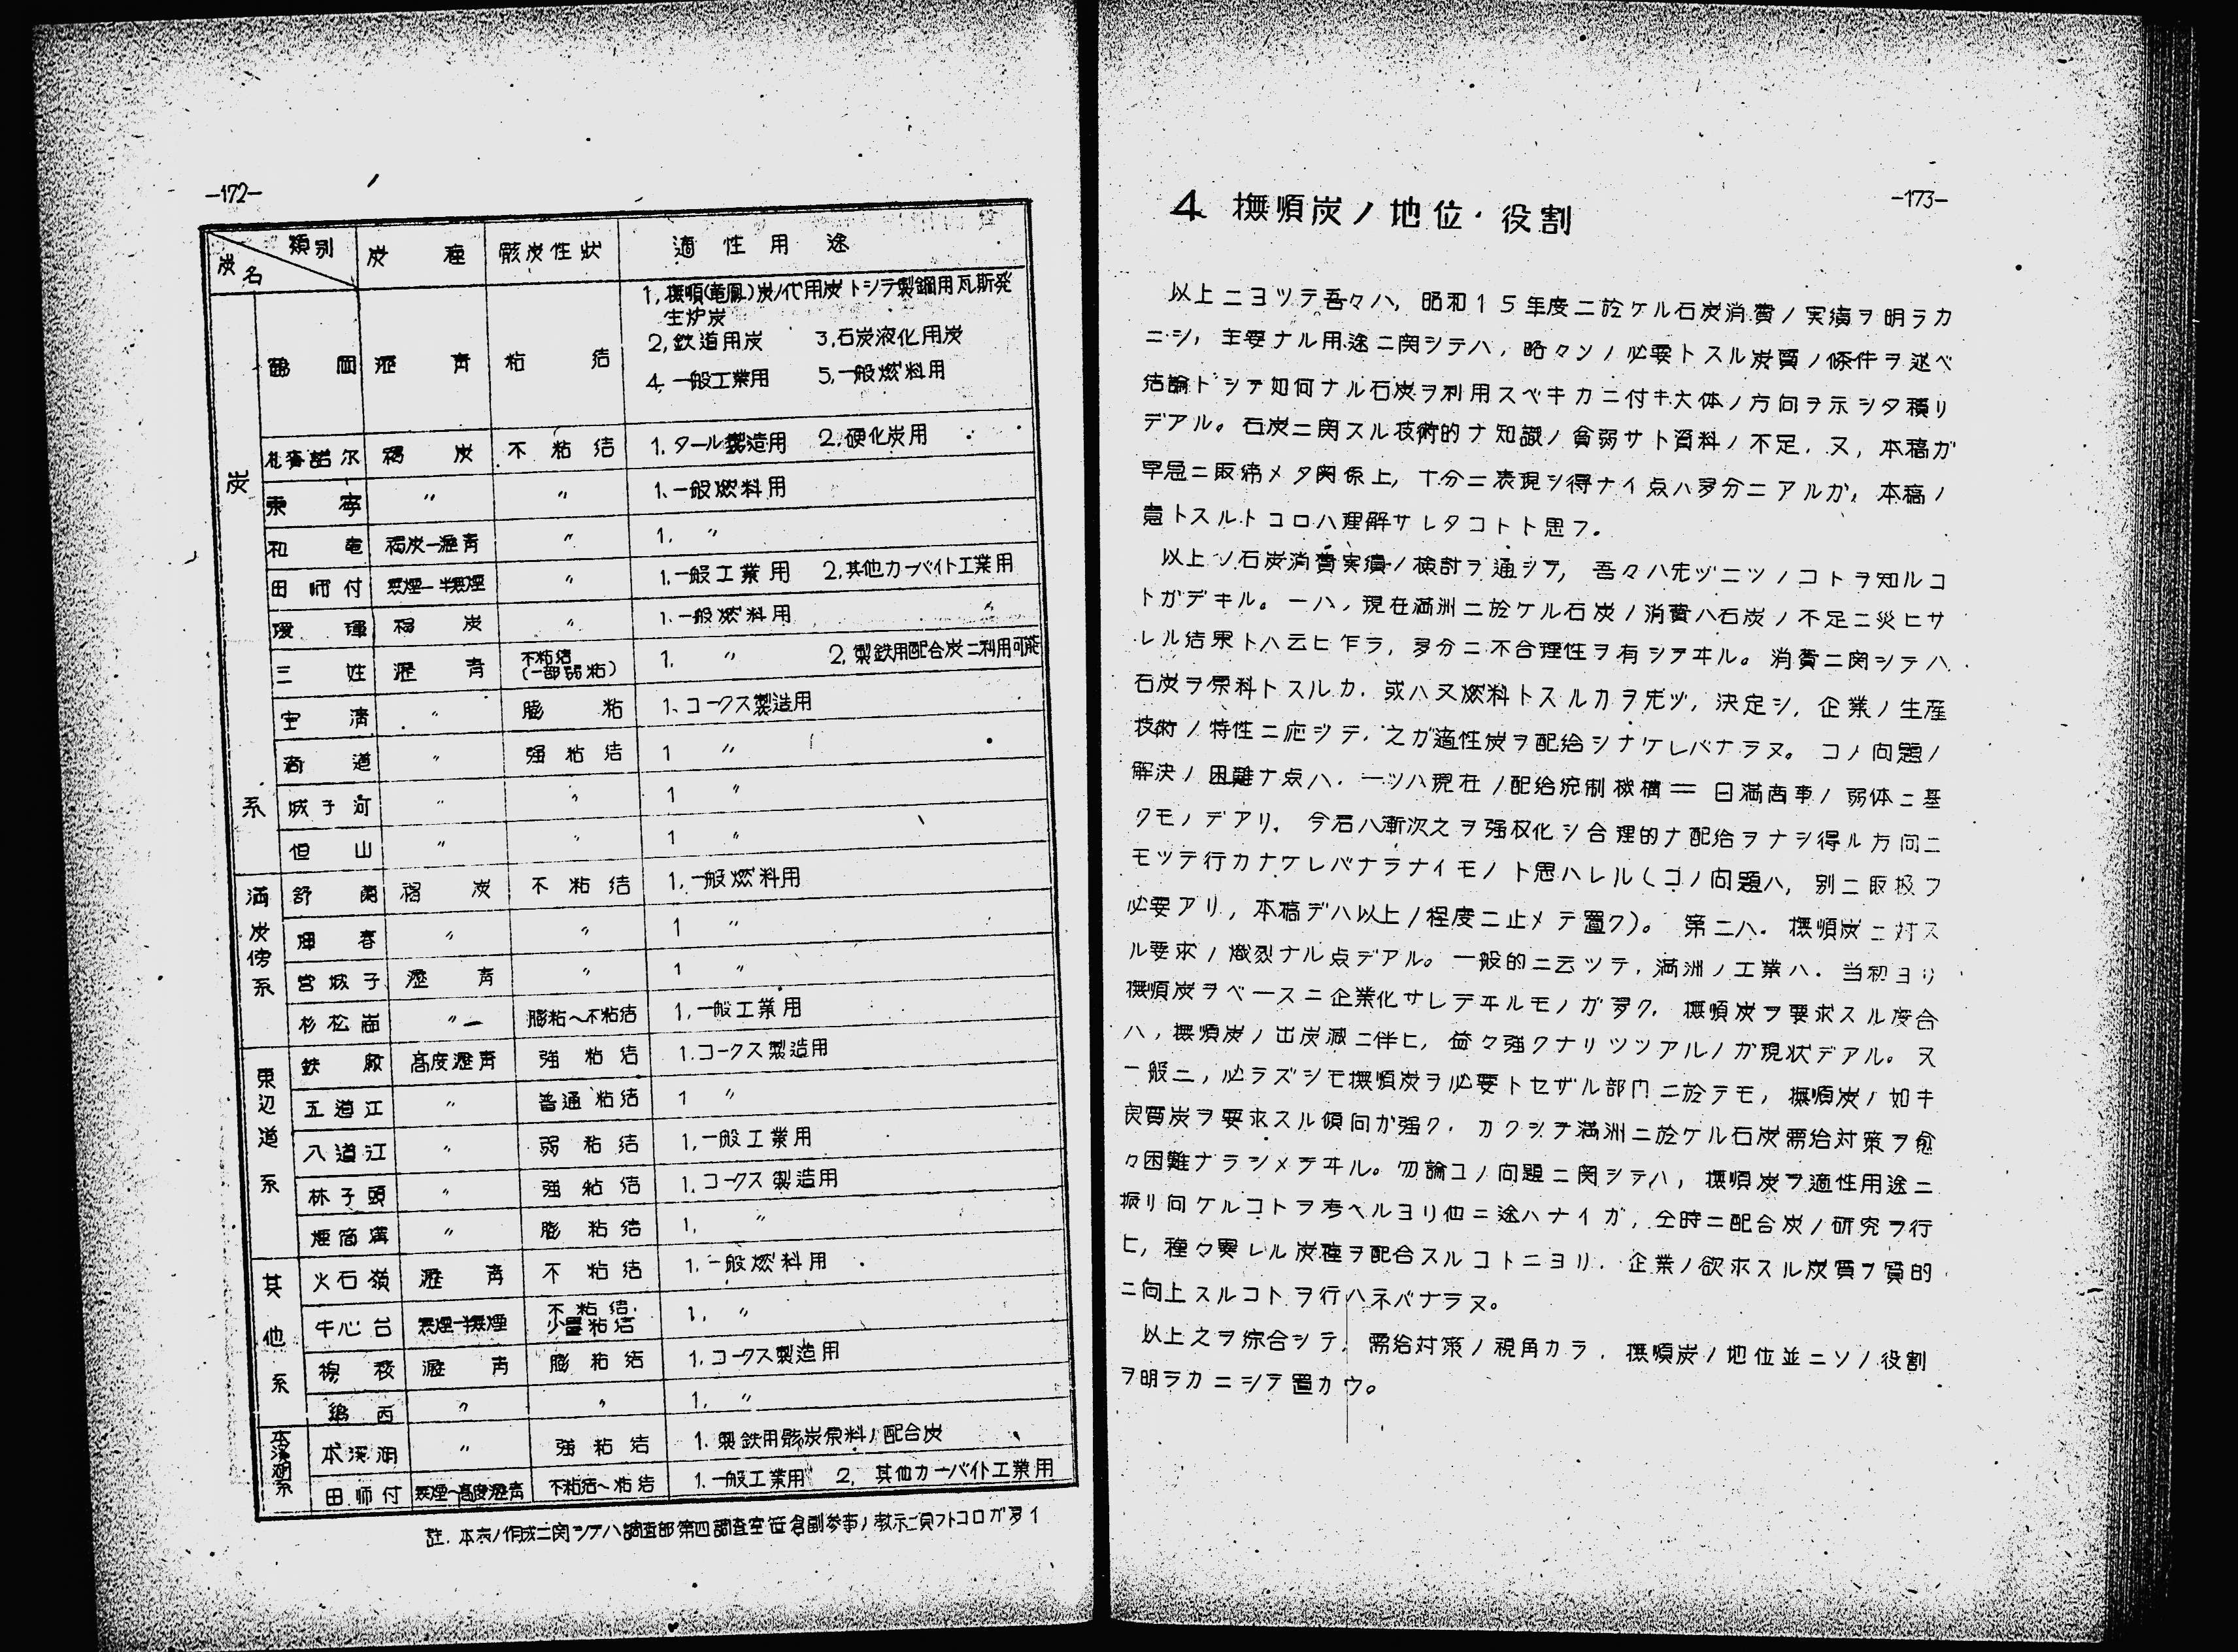 —172—
炭名 類別 炭種 骸炭性状 適性用途
炭系
鶴岡 瀝青 粘結 1,撫順(竜鳳)炭ノ代用炭トシテ製鋼用瓦斯発
生炉炭
2,鉄道用炭 3,石炭液化用炭
4,一般工業用 5,一般燃料用
札賚諾尔 褐炭 不粘結 1.タール製造用 2.硬化炭用
東寧 〃 〃 1、一般燃料用
和竜 褐炭—瀝青 〃 1. 〃
田師付 無煙—半無煙 〃 1.一般工業用 2,其他カーバイト工業用
璦琿 褐炭 〃 1.一般燃料用
三姓 瀝青 不粘結(一部弱粘) 1. 〃 2.製鉄用配合炭ニ利用可能
宝清 〃 膨粘 1、コークス製造用
滴道 〃 強粘結 1 〃
城子河 〃 〃 1 〃
恒山 〃 〃 1 〃
満炭傍系
舒蘭 褐炭 不粘結 1.一般燃料用
琿春 〃 〃 1 〃
営城子 瀝青 〃 1 〃
杉松崗 〃 膨粘〜不粘結 1.一般工業用
東辺道系
鉄廠 高度瀝青 強粘結 1.コークス製造用
五道江 〃 普通粘結 1 〃
八道江 〃 弱粘結 1.一般工業用
林子頭 〃 強粘結 1.コークス製造用
煙筒溝 〃 膨粘結 1. 〃
其他系
火石嶺 瀝青 不粘結 1.一般燃料用
牛心台 無煙—半無煙 不粘結.少量粘結 1. 〃
瀝青 膨粘結 1.コークス製造用
西 〃 〃 1. 〃
本溪湖系
本溪湖 〃 強粘結 1.製鉄用骸炭原料ノ配合炭
田師付 無煙〜高度瀝青 不粘結〜粘結 1.一般工業用 2,其他カーバイト工業用
註.本表ノ作成ニ関シテハ調査部第四調査室笹倉副参事ノ教示ニ負フトコロガ多イ
—173—
4 撫順炭ノ地位・役割
以上ニヨツテ吾々ハ,昭和15年度ニ於ケル石炭消費ノ実績ヲ明ラカ
ニシ,主要ナル用途ニ関シテハ,略々ソノ必要トスル炭質ノ條件ヲ述べ
結論トシテ如何ナル石炭ヲ利用スベキカニ付キ大体ノ方向ヲ示シタ積リ
デアル。石炭ニ関スル技術的ナ知識ノ貧弱サト資料ノ不足.又,本稿ガ
早急ニ取纏メタ関係上,十分ニ表現シ得ナイ点ハ多分ニアルガ,本稿ノ
意トスルトコロハ理解サレタコトト思フ。
以上ノ石炭消費実績ノ検討ヲ通シテ,吾々ハ先ヅ二ツノコトヲ知ルコ
トガデキル。一ハ,現在満洲ニ於ケル石炭ノ消費ハ石炭ノ不足ニ災ヒサ
レル結果トハ云ヒ乍ラ,多分ニ不合理性ヲ有シテヰル。消費ニ関シテハ
石炭ヲ原料トスルカ.或ハ又燃料トスルカヲ先ヅ,決定シ,企業ノ生産
技術ノ特性ニ応ジテ.之ガ適性炭ヲ配給シナケレバナラヌ。コノ問題ノ
解決ノ困難ナ点ハ.一ツハ現在ノ配給統制機構＝日満商事ノ弱体ニ基
クモノデアリ.今后ハ漸次之ヲ強权化シ合理的ナ配給ヲナシ得ル方向ニ
モツテ行カナケレバナラナイモノト思ハレル(コノ問題ハ,別ニ取扱フ
必要アリ,本稿デハ以上ノ程度ニ止メテ置ク)。第二ハ.撫順炭ニ対ス
ル要求ノ熾烈ナル点デアル。一般的ニ云ツテ,満洲ノ工業ハ.当初ヨリ
撫順炭ヲベースニ企業化サレテヰルモノガ多ク.撫順炭ヲ要求スル度合
ハ,撫順炭ノ出炭減ニ伴ヒ,益々強クナリツツアルノガ現状デアル。又
一般ニ,必ラズシモ撫順炭ヲ必要トセザル部門ニ於テモ,撫順炭ノ如キ
良質炭ヲ要求スル傾向ガ強ク.カクシテ満洲ニ於ケル石炭需給対策ヲ愈
々困難ナラシメテヰル。勿論コノ問題ニ関シテハ,撫順炭ヲ適性用途ニ
振リ向ケルコトヲ考ヘルヨリ他ニ途ハナイガ,仝時ニ配合炭ノ研究ヲ行
ヒ,種々異レル炭種ヲ配合スルコトニヨリ.企業ノ欲求スル炭質ヲ質的
ニ向上スルコトヲ行ハネバナラヌ。
以上之ヲ綜合シテ,需給対策ノ視角カラ.撫順炭ノ地位並ニソノ役割
ヲ明ラカニシテ置カウ。